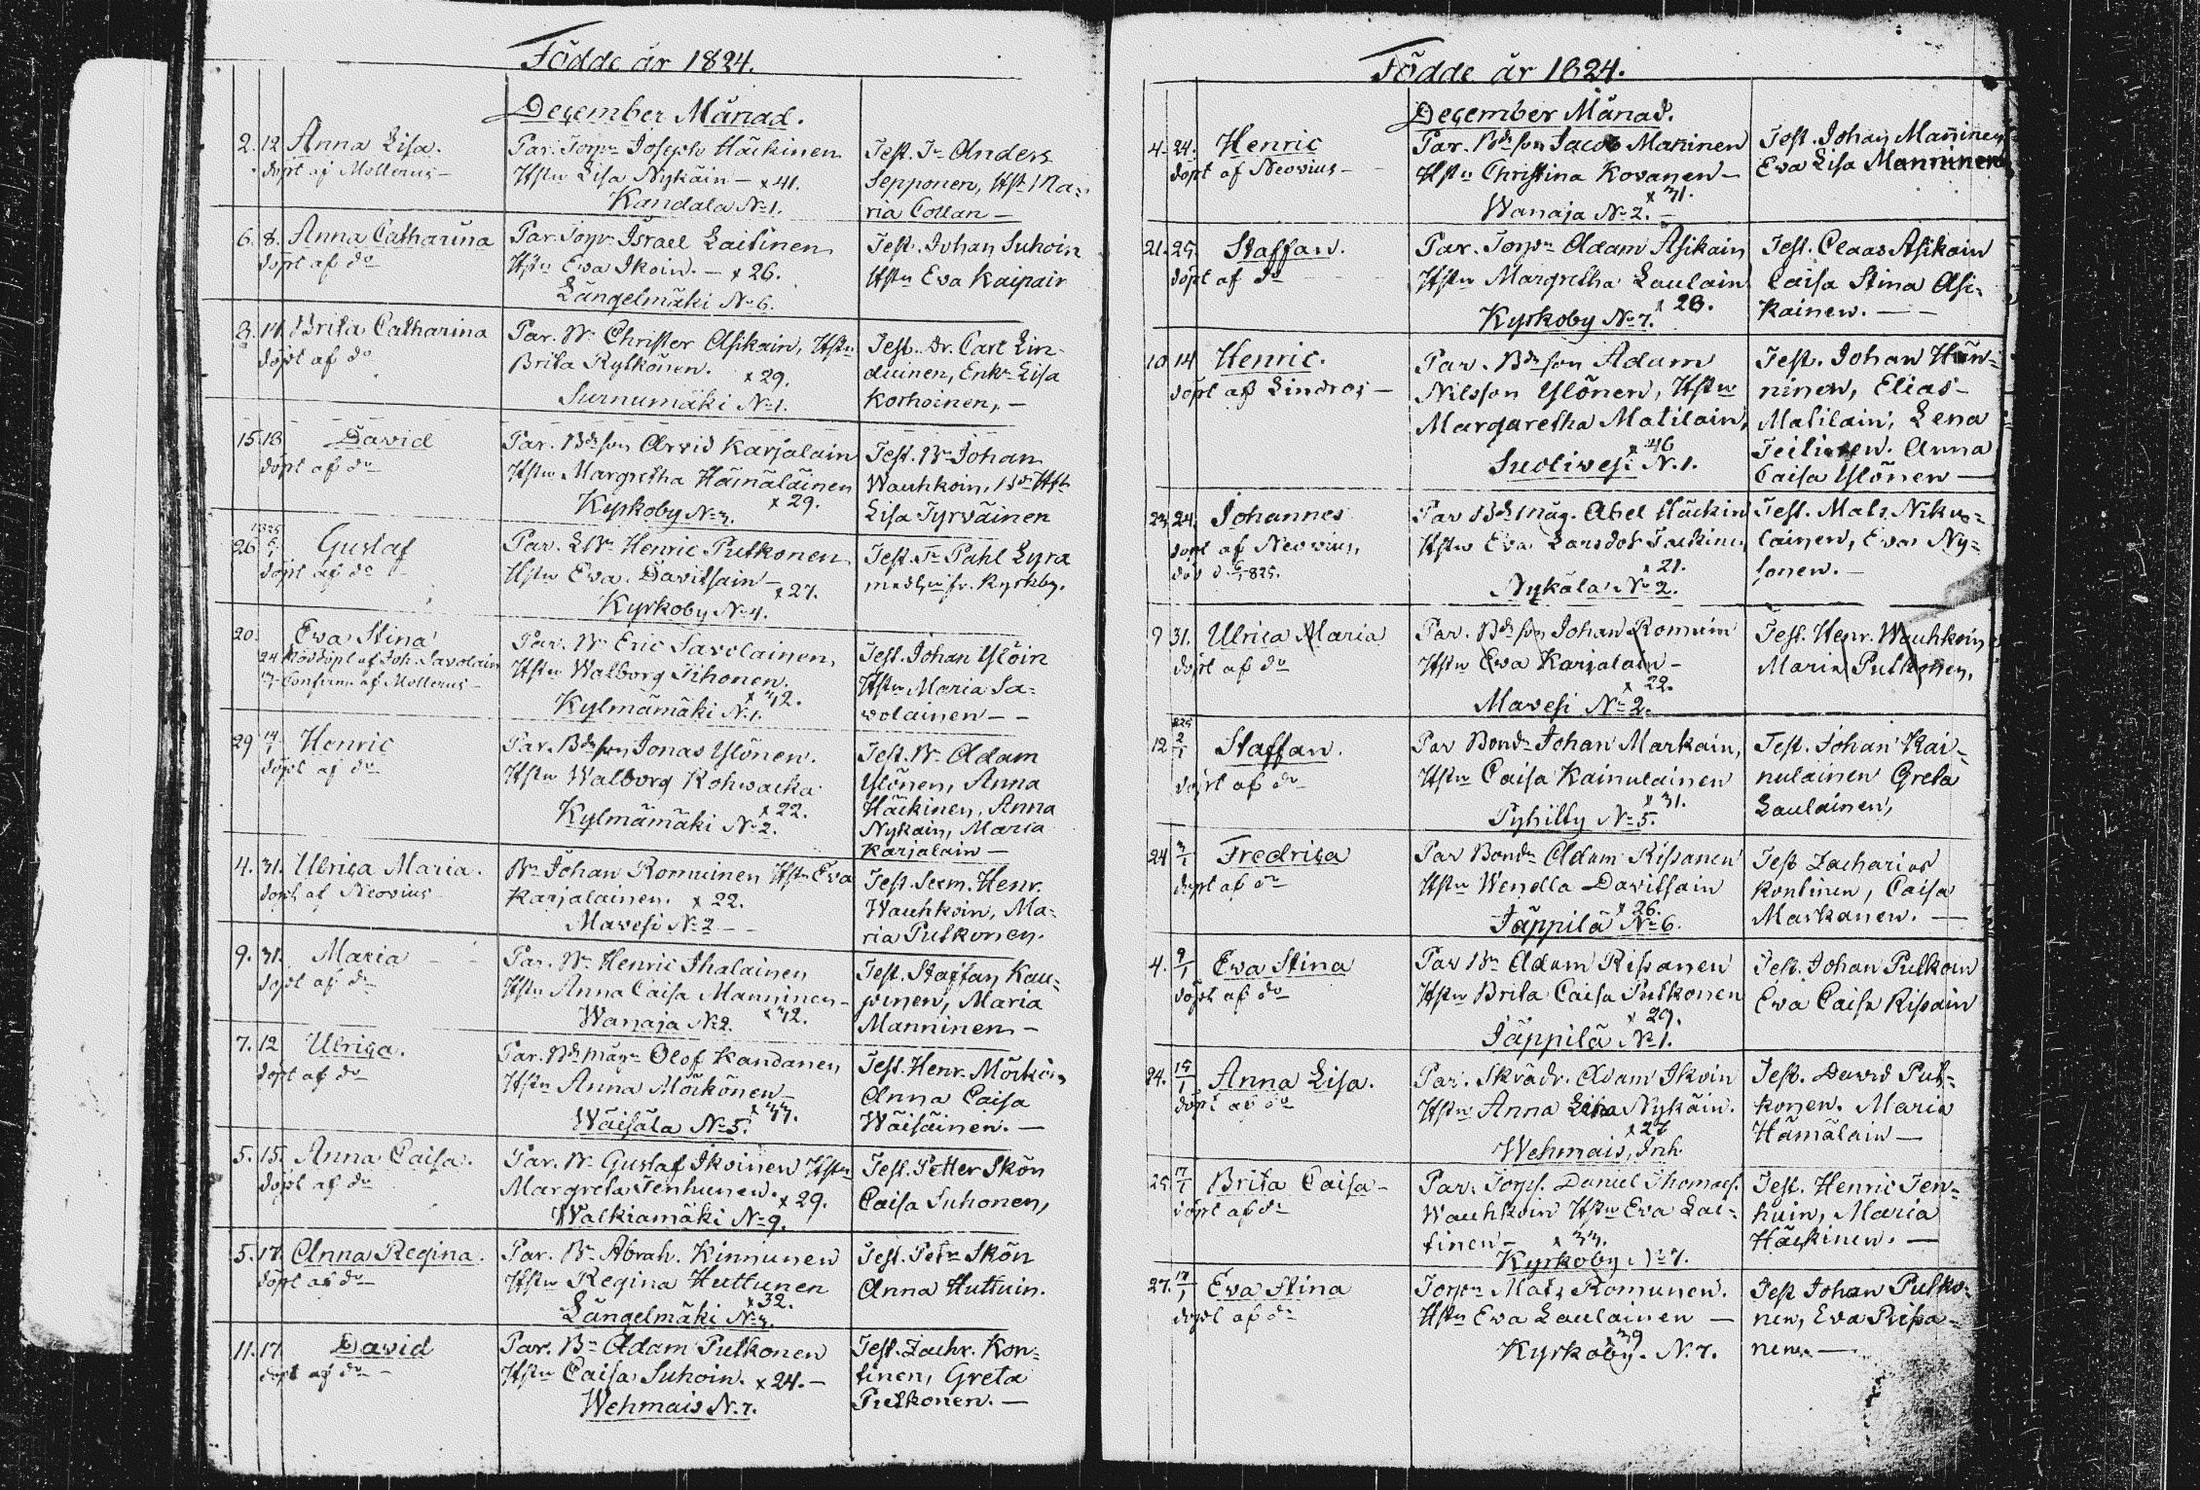 Födde år 1824.
December Månad.
2. 12 Anna Lisa.
döpt af Mollerus
Par. Torp. Joseph Häckinen
Hstu Lisa Nykäin x 41.
Kandala No 1.
Test. Anders
Sepponen, Hst. Ma-
ria Collan
6. 8. Anna Catharina
döpt af do
Par. Torp. Israel Laitinen
Hstu Ewa Ikoin. x 26.
Längelmäki No 6.
Test. Johan Suhoin
Hstu Eva Kaipain
8. 14 Brita Catharina
döpt af do
Par. Christer Asikain, Hstu
Brita Rytkönen. x 29.
Surnumäki No 1.
Test. Dr. Carl Lin-
duinen, Enk. Lisa
Korhoinen,
15. 18 David
döpt af do
Par. Bdeson Arvid Karjalain
Hstu Margretha Hämäläinen
Kyrkoby No 3. x 29.
Test. Bn Johan
Wauhkoin, Hstu
Lisa Tyrväinen
26 Gustaf
döpt af do
Par. Henric Putkonen
Hstu Ewa Davitsain
x 27.
Kyrkoby No 4.
Test. Pahl Lyra
med hu fr. Kyrkby.
20. Ewa Stina
24 Nöddöpt af Joh. Savolain
Confirm. af Mollerus
Par. Eric Savolainen,
Hstu Walborg Tihonen.
Kylmämäki No 1. x 42.
Test. Johan Ylöin
Hstu Maria Sa-
volainen
29 14/1 Henric
döpt af do
Par. Bdeson Jonas Ylönen.
Hstu Walborg Rohwacka
x 22.
Kylmämäki No 2.
Test. Bn Adam
Ylönen, Anna
Häckinen, Anna
Nykain, Maria
Karjalain
4. 31. Ulrica Maria.
döpt af Neovius
Bn Johan Romuinen Hstu Eva
Karjalainen. x 22.
Mavesi No 2
Test. Sexm. Henr.
Wauhkoin, Ma-
ria Putkonen.
9. 31. Maria
döpt af do
Par. Henric Ihalainen
Hstu Anna Caisa Manninen
Wanaja No 2. x 42.
Test. Staffan Kau-
pinen, Maria
Manninen
7. 12 Ulrica.
döpt af do
Par. Bdemåg Olof Kandanen
Hstu Anna Mörkönen
Wäisälä No 5.
Test. Henr. Mörkön
Anna Caisa
Wäisäinen.
5. 15. Anna Caisa.
döpt af do
Par. Gustaf Ikoinen Hstu
Margreta Tenhunen. x 29.
Walkiamäki No 9.
Test. Petter Skön
Caisa Suhonen,
5. 17. Anna Regina.
döpt af do
Par. Bn Abrah. Kinnunen
Hstu Regina Huttunen
x 32.
Längelmäki No 3.
Test. Petr Skön
Anna Huttuin.
11. 17 David
döpt af do
Par. Bn Adam Putkonen
Hstu Caisa Suhoin. x 24.
Wehmais N. 7.
Test. Zachr. Kon-
tinen, Greta
Putkonen.
Födde år 1824.
December Månad.
4. 24. Henric
döpt af Neovius
Par. Bdeson Jacob Manninen
Hstu Christina Kovanen
x 31.
Wanaja No 2.
Test. Johan Manninen
Eva Lisa Manninen
21. 25. Staffan.
döpt af do
Par. Torpn Adam Asikain
Hstu Margretha Laulain
x 28.
Kyrkoby No 7.
Test. Claas Asikain
Caisa Stina Asi-
kainen.
10 14 Henric.
döpt af Lindros
Par. Bdeson Adam
Nilsson Ylönen, Hstu
Margaretha Matilain,
x 46
Suotiwesi N. 1.
Test. Johan Hän-
ninen, Elias
Matilain, Lena
Anna
Caisa Ylönen
23. 24. Johannes
döpt af Neovius,
död d. 825.
Par Bdemåg. Abel Häckin
Hstu Eva Larsdot
x 21.
Nykälä No 2.
Test. Mats Niku-
lainen, Eva Ny-
sonen.
9 31. Ulrica Maria
döpt af do
Par. Bdeson Johan Romuin
Hstu Ewa Karjalain
x 22.
Mavesi No 2.
Test. Henr. Wauhkoin
Maria Putkonen.
12 825 2/1 Staffan.
döpt af do
Par Bonde Johan Markain,
Hstu Caisa Kainulainen
x 31.
Pyhitty No 5.
Test. Johan Kai-
nulainen Greta
Laulainen,
24 3/1 Fredrica
döpt af do
Par Bonde Adam Risanen
Hstu Wendla Davitsain
x 26.
Jäppilä No 6.
Test Zacharias
Kontinen, Caisa
Markanen.
4. 9/1 Ewa Stina
döpt af do
Par Bn Adam Risanen
Hstu Brita Caisa Putkonen
x 29.
Jäppilä No 1.
Test. Johan Putkoin
Eva Caisa Risain
24. 15/1 Anna Lisa.
döpt af do
Par. Skrädr. Adam Ikoin
Hstu Anna Nykäin.
x 27
Wehmais, Inh
Test. David Put-
konen. Maria
Hämäläin
25 17/1 Brita Caisa
döpt af do
Par. Torps. Daniel Thomass.
Wauhkoin Hstu Eva Lai-
tinen x 33.
Kyrkoby No 7.
Test. Henric Ten-
huin, Maria
Häckinen.
27. 17/1 Ewa Stina
döpt af do
Torpn Mats Romunen.
Hstu Ewa Laulainen
x 39
Kyrkoby. N. 7.
Test Johan Putko-
nen, Eva Risa-
nen.